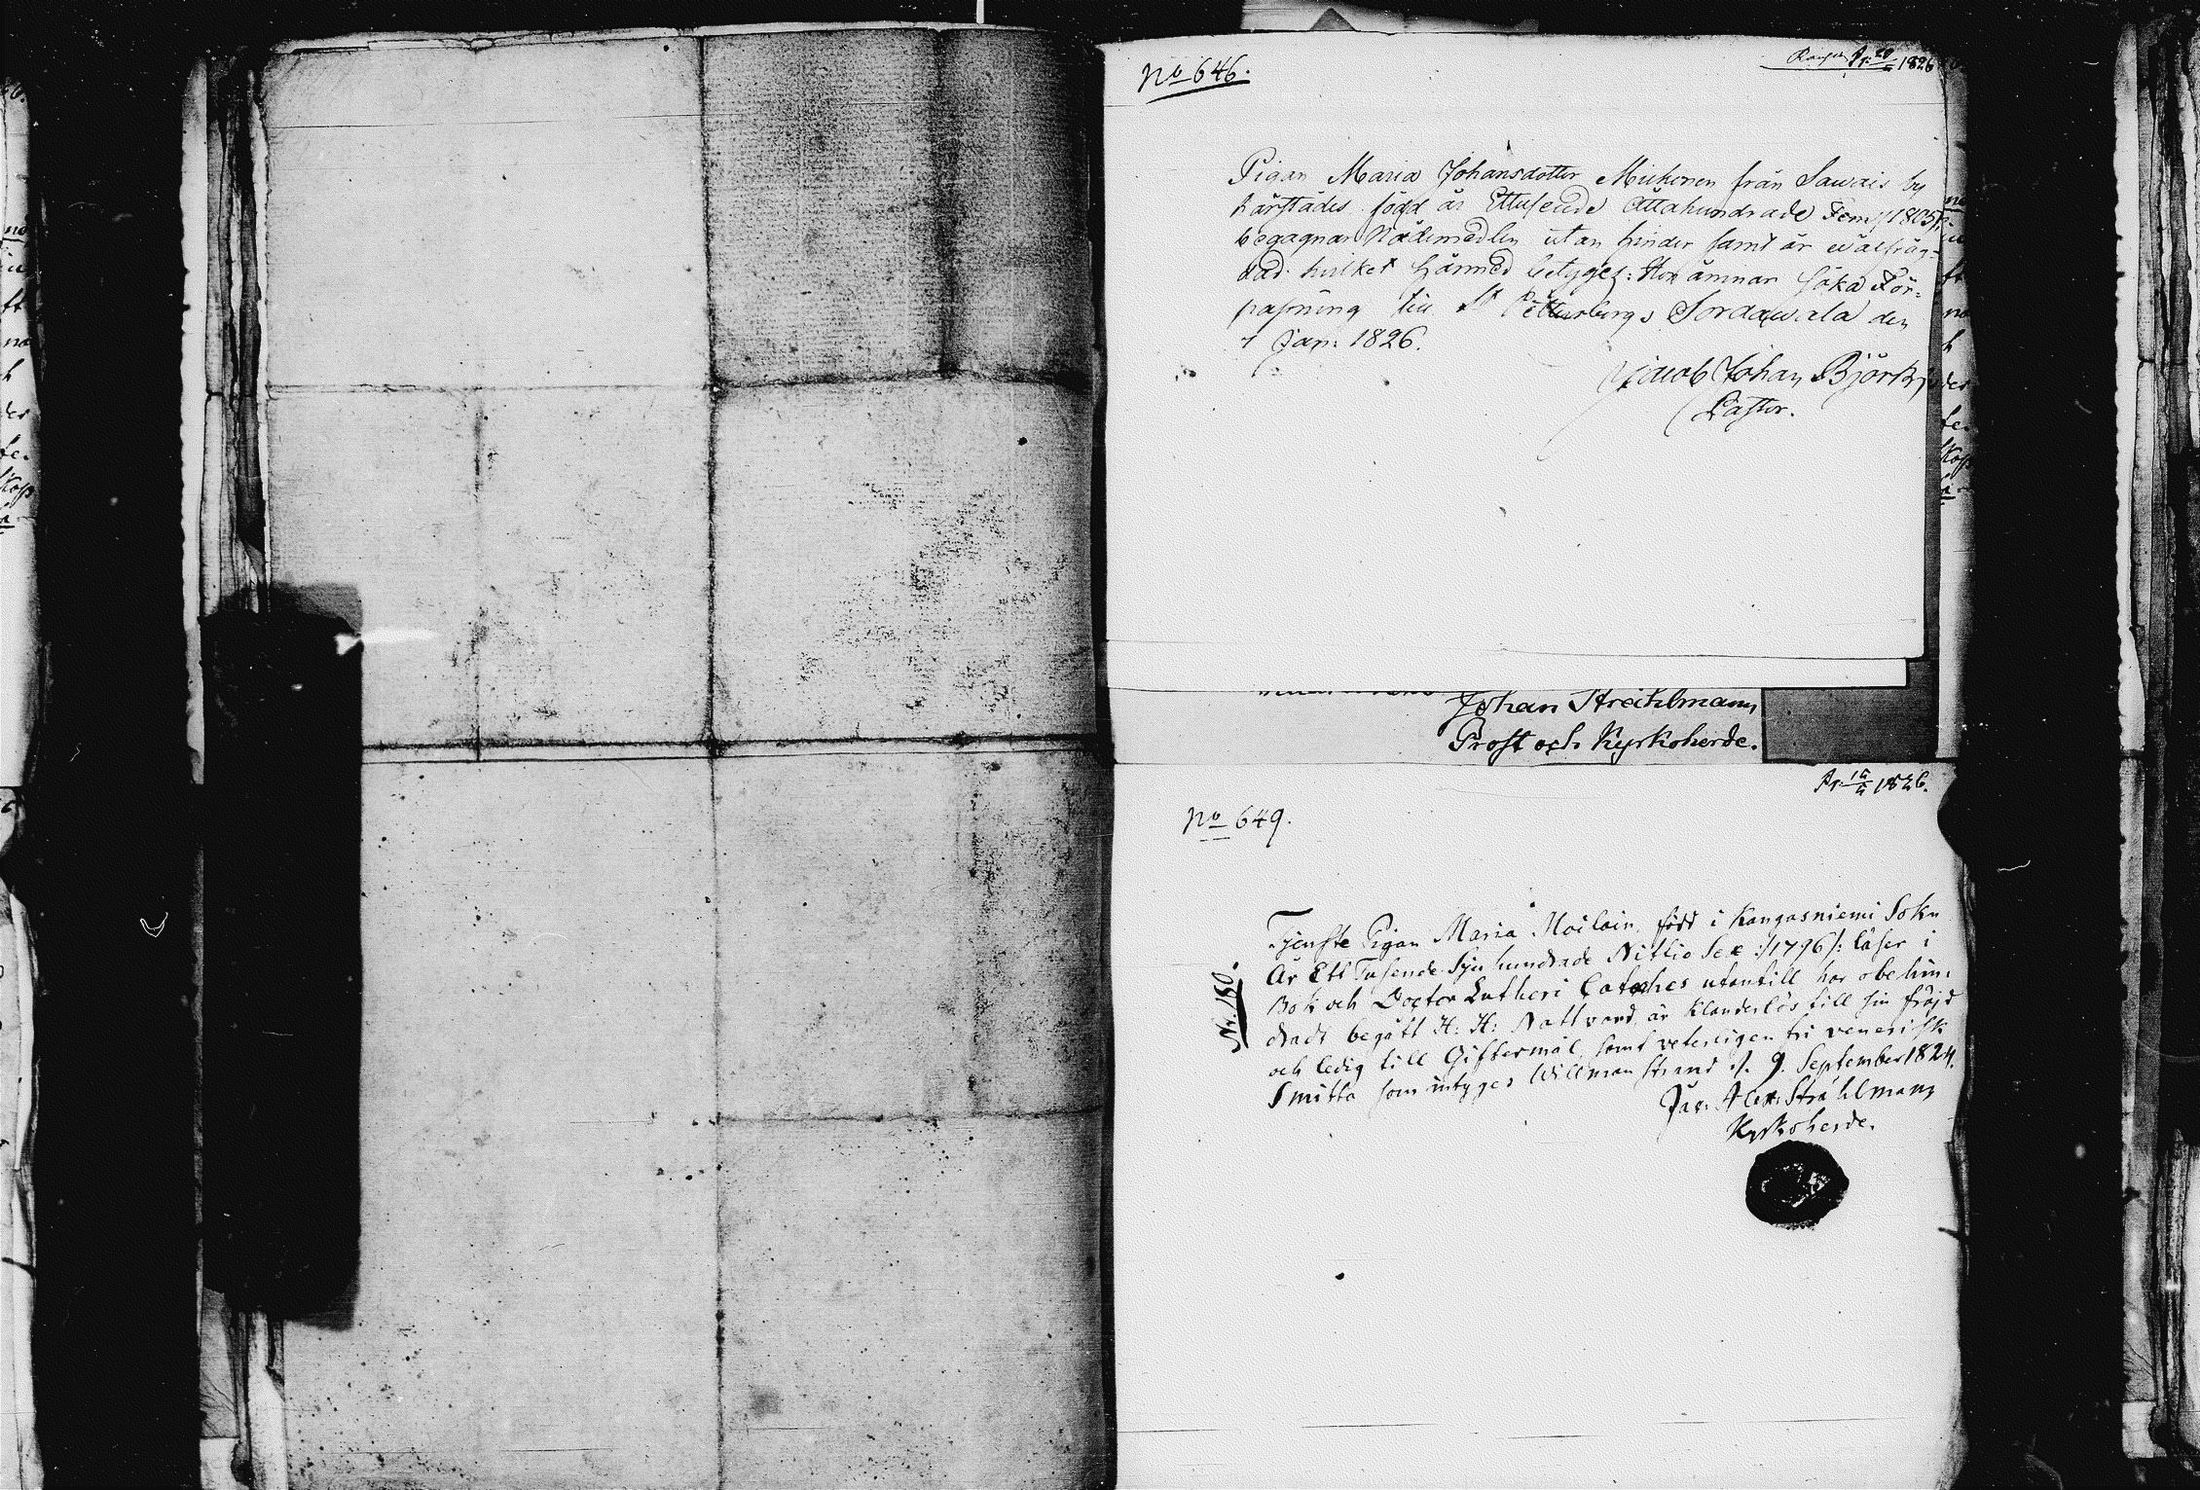 No 646.
Pr. 20/4 1826
Pigan Maria Johansdotter Mickonen från Sawais by
härstädes född år Ettusende Åttahundrade Fem /1805/,
begagnar Nådemedlen utan hinder samt är wälfräg-
dad. hvilket härmed betyges: Hon ämnar söka För-
passning till St Pettersburg. Sordawala den
7 Jan: 1826.
Jacob Johan Björk
Pastor.
Johan Stråhlmann
Prost och Kyrkoherde.
Pr. 1826.
No 649.
Nr. 180.
Tjenste Pigan Maria Moilain, född i Kangasniemi Sokn
År Ett Tusende Sju hundrade Nittio Sex :/1796/: läser i
Bok och Doctor Lutheri Cateches utantill har obehin-
dradt begått H: H: Nattvard, är klanderlös till sin fräjd
och ledig till Giftermål, samt veterligen fri venerisk
Smitta som intyges Willmanstrand d. 9. September 1824.
Jac: Alex: Stråhlmann
Kyrkoherde.